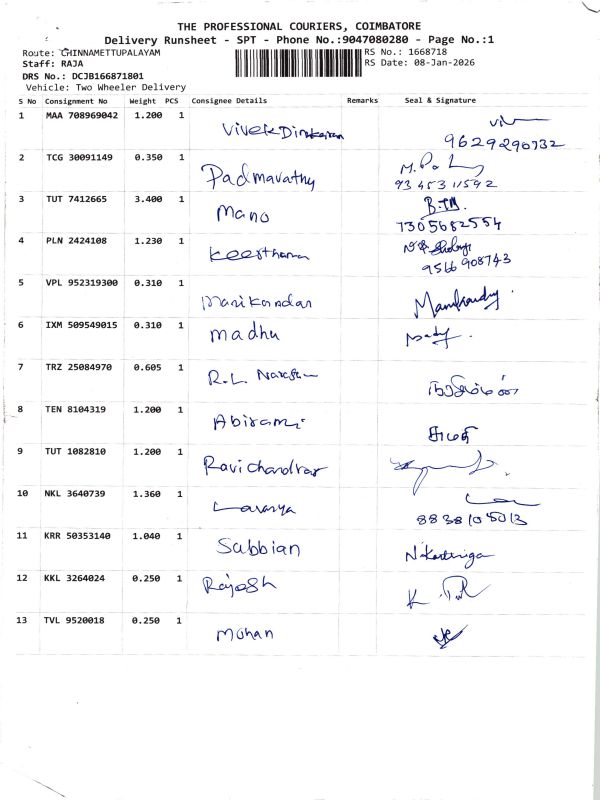 THE PROFESSIONAL COURIERS, COIMBATORE
Delivery Runsheet - SPT - Phone No.:9047080280 - Page No.:1
Route: CHINNAMETTUPALAYAM
RS No.: 1668718
Staff: RAJA
RS Date: 08-Jan-2026
DRS No.: DCJB166871801
Vehicle: Two Wheeler Delivery
S No Consignment No Weight PCS Consignee Details Remarks Seal & Signature
1 MAA 708969042 1.200 1 Vivek Dinakaran
9629290732
2 TCG 30091149 0.350 1 Padmavathy
93453 11592
3 TUT 7412665 3.400 1 Mano
7305682554
4 PLN 2424108 1.230 1 Keerthana
9566 908743
5 VPL 952319300 0.310 1 Manikandan
6 IXM 509549015 0.310 1 madhu
7 TRZ 25084970 0.605 1 R.L.
8 TEN 8104319 1.200 1 Abirami
9 TUT 1082810 1.200 1 Ravichandran
10 NKL 3640739 1.360 1 Lavanya
8838105013
11 KRR 50353140 1.040 1 Sabbian
12 KKL 3264024 0.250 1 Rajesh
13 TVL 9520018 0.250 1 Mohan